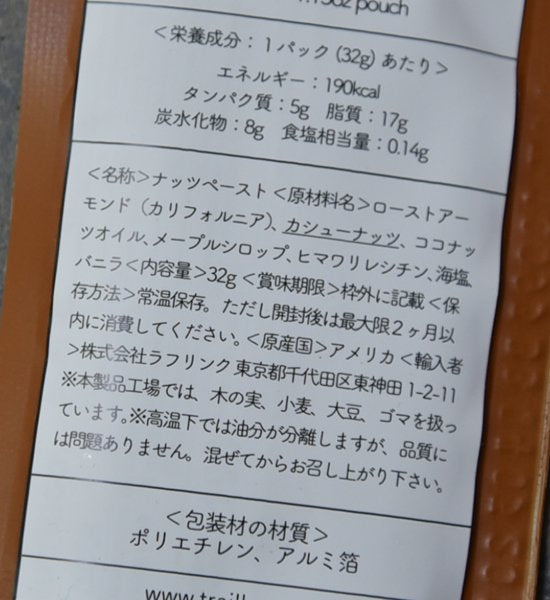 pouch
＜栄養成分：１パック (32g) あたり＞
エネルギー：190kcal
タンパク質：5g　脂質：17g
炭水化物：8g　食塩相当量：0.14g
＜名称＞ナッツペースト＜原材料名＞ローストアー
モンド（カリフォルニア）、カシューナッツ、ココナッ
ツオイル、メープルシロップ、ヒマワリレシチン、海塩、
バニラ＜内容量＞32g＜賞味期限＞枠外に記載＜保
存方法＞常温保存。ただし開封後は最大限２ヶ月以
内に消費してください。＜原産国＞アメリカ＜輸入者
＞株式会社ラフリンク 東京都千代田区東神田 1-2-11
※本製品工場では、木の実、小麦、大豆、ゴマを扱っ
ています。※高温下では油分が分離しますが、品質に
は問題ありません。混ぜてからお召し上がり下さい。
＜包装材の材質＞
ポリエチレン、アルミ箔